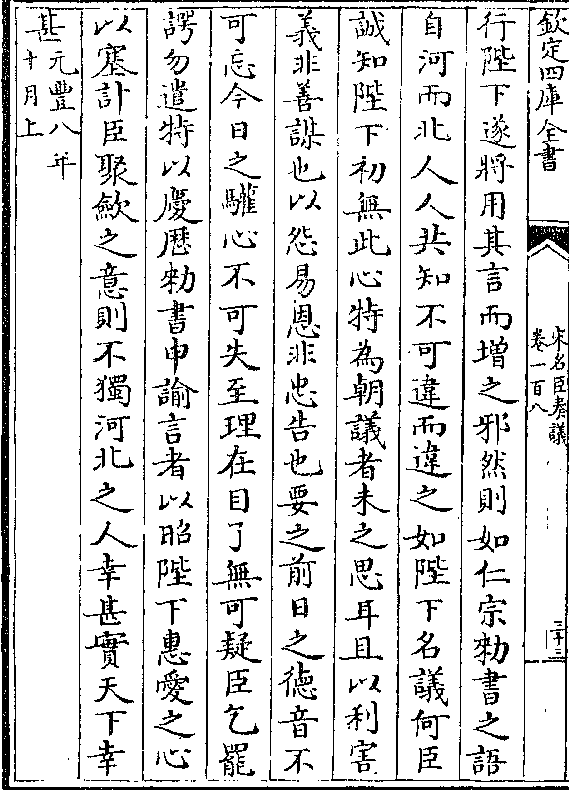 欽定四庫全書
宋名臣奏議
卷一百八
三十三
行陛下遂將用其言而增之邪然則如仁宗勑書之語
自河而北人人共知不可違而違之如陛下名議何臣
誠知陛下初無此心特為朝議者未之思耳且以利害
義非善謀也以怨易恩非忠告也要之前日之德音不
可忘今日之驩心不可失至理在目了無可疑臣乞罷
諤勿遣特以慶歴勑書申諭言者以昭陛下惠愛之心
以塞計臣聚歛之意則不獨河北之人幸甚實天下幸
甚元豐八年
十月上